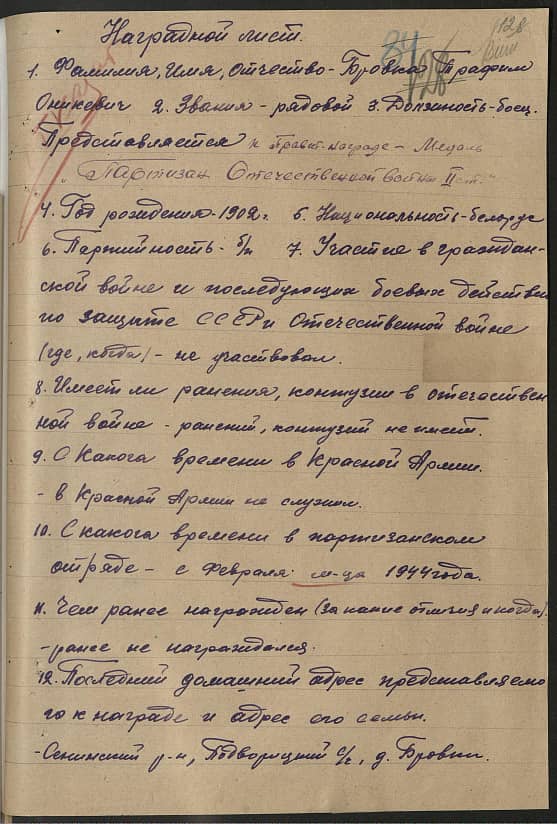 Наградной лист.
84
128
128
1. Фамилия, Имя, Отчество - Бровка Трафим
Оникевич 2. Звания - рядовой 3. Должность - боец.
Представляется к Правит. награде - Медаль
"Партизан Отечественной войны II ст."
4. Год рождения - 1902 г. 5. Национальность - белорус
6. Партийность - б/п 7. Участие в граждан-
ской войне и последующих боевых действий
по защите СССР и Отечественной войне
(где, когда) - не участвовал.
8. Имеет ли ранения, контузии в отечествен
ной войне - ранений, контузий не имеет.
9. С Какога времени в Красной Армии.
- в Красной Армии не служил.
10. С какога времени в партизанском
отряде - с Февраля м-ца 1944 года.
11. Чем ранее награжден (за какие отличия и когда).
- ранее не награждался.
12. Последний домашний адрес представляемо
го к награде и адрес его семьи.
- Сенинский р-н, Подворицкий с/с, д. Бровки.